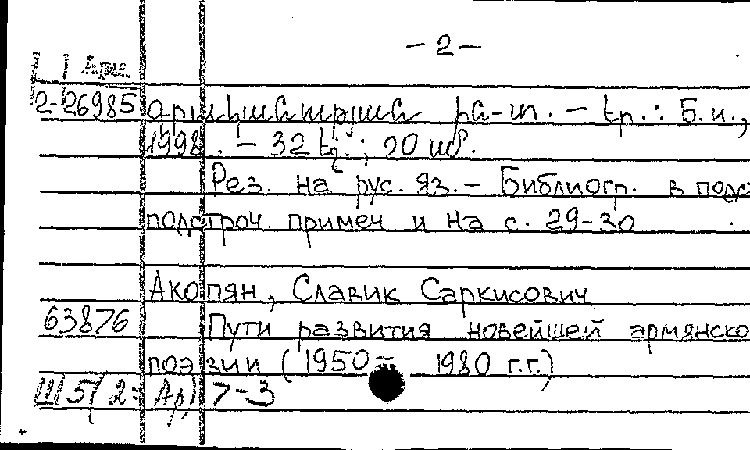 — 2 —
Арм.
2-26985 ին-տ. — Եր. : Б.и.,
1998. — 32 էջ ; 20 սմ.
Рез. на рус. яз. — Библиогр. в подс
подстроч. примеч и на с. 29-30
Акопян, Славик Саркисович
63876 Пути развития новейшей армянско
поэзии (1950 — 1980 г.г.)
Ш5(2=Ар)7-3